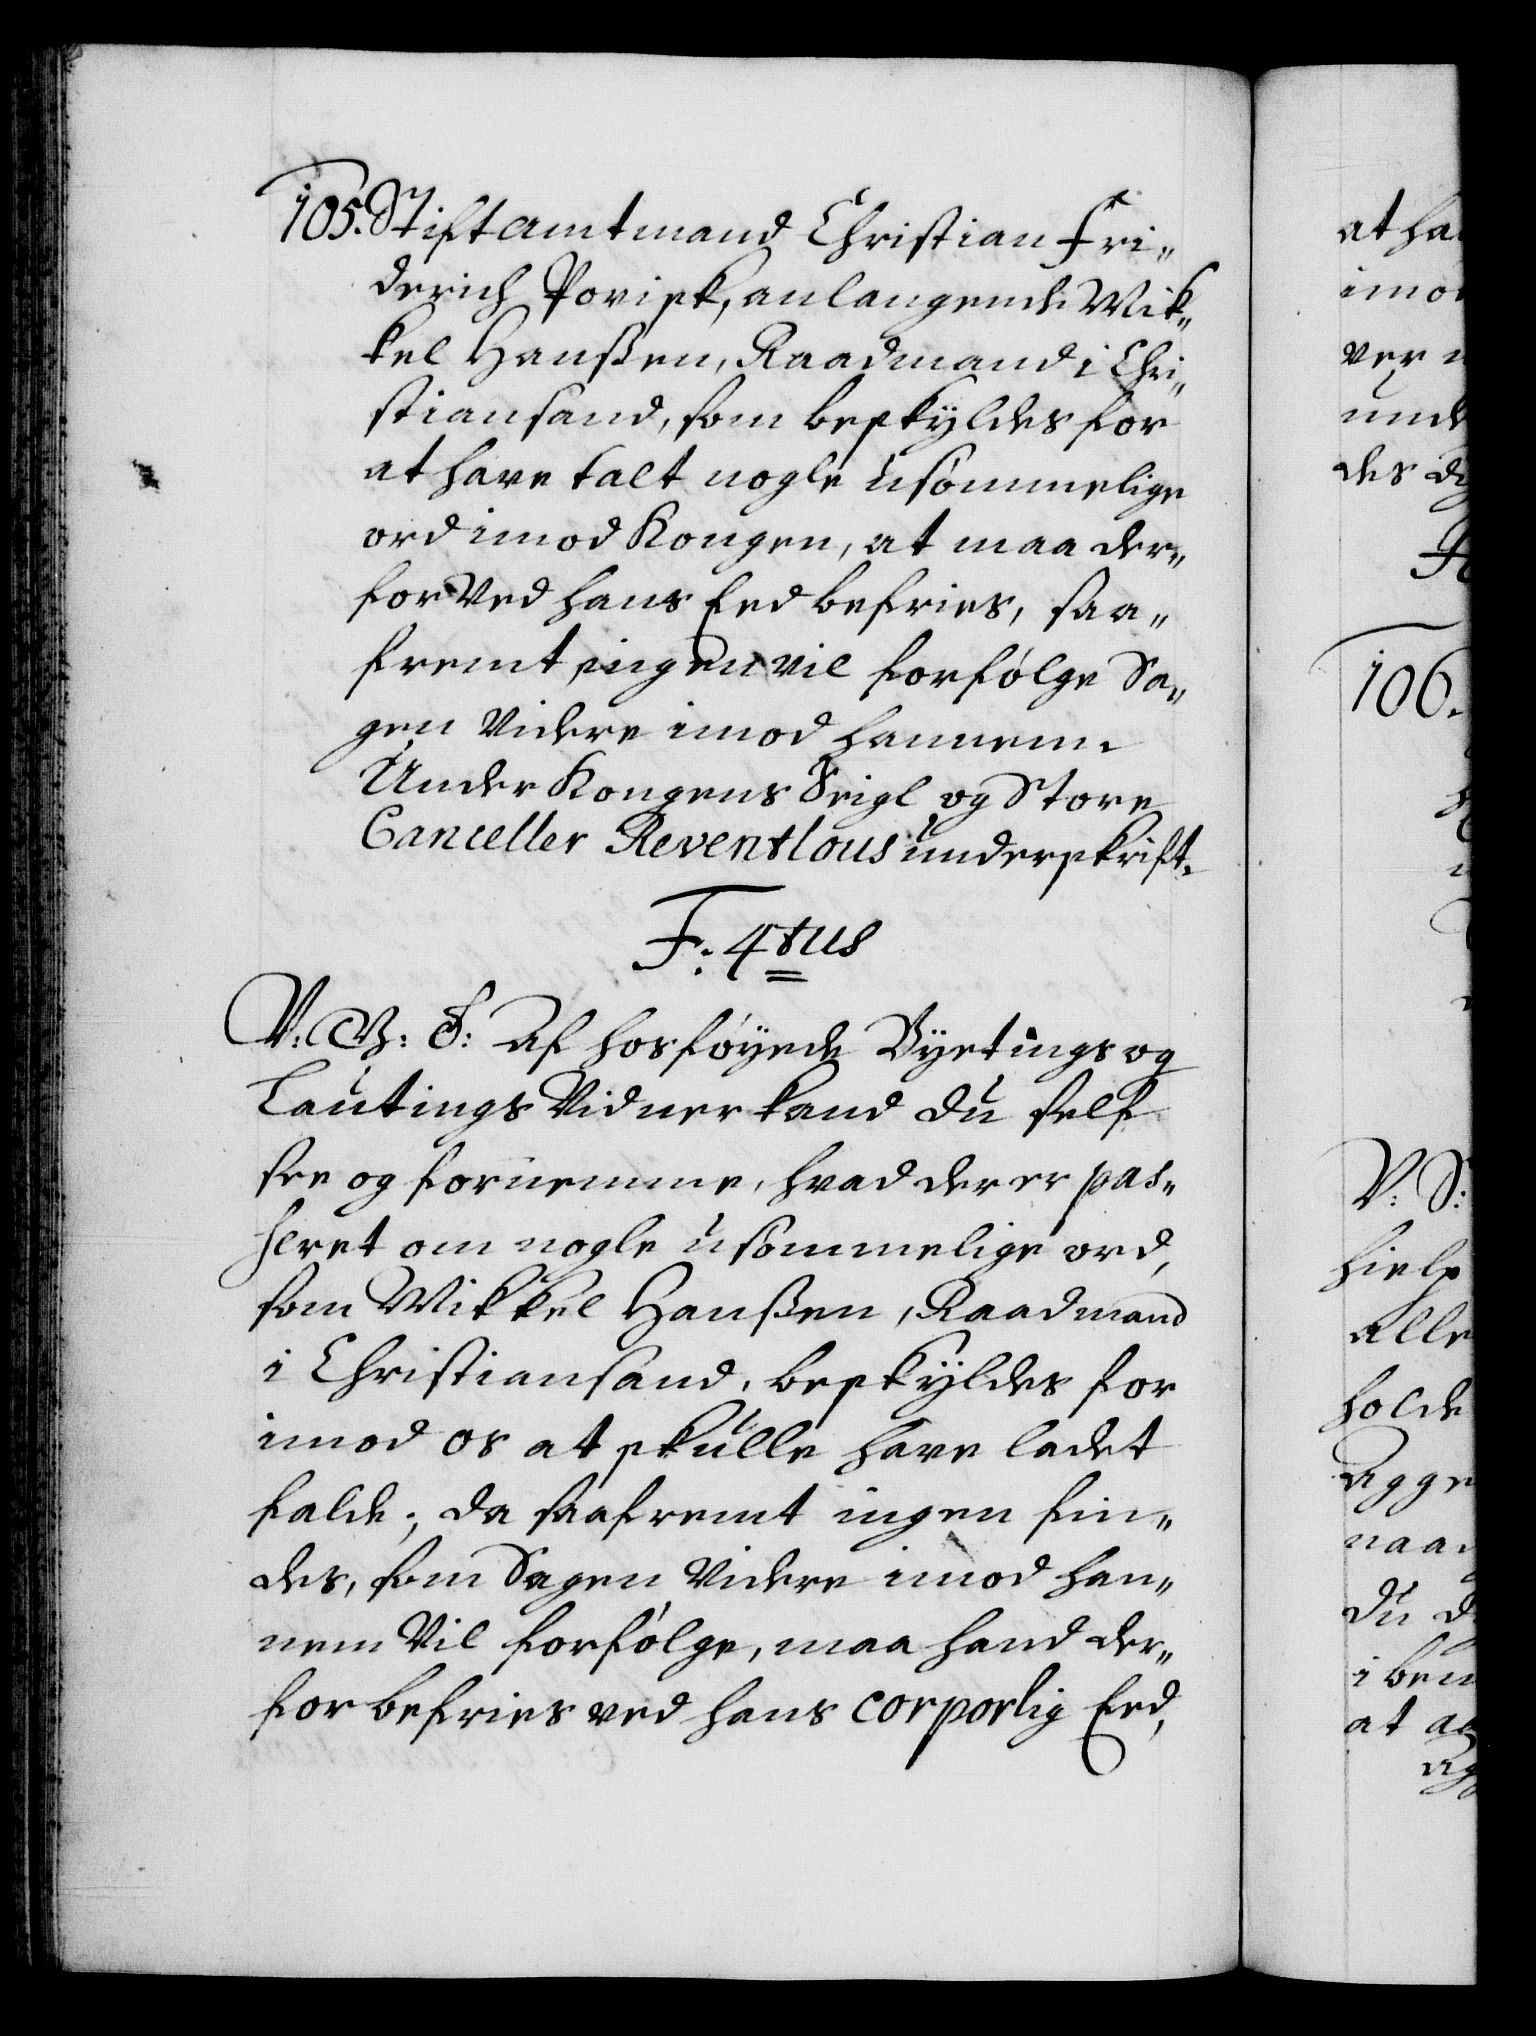 105. Stiftamtmand Christian Fri„
derich Povisk, anlangende Mik„
kel Hanßen, Raadmand i Chri„
stiansand, som beskyldes for
at have talt nogle usømmelige
ord imod Kongen, at maa der„
for ved hans Eed befries, saa„
fremt ingen vil forfølge Sa„
gen videre imod hannem.
Under Kongens Seigl og Store
Canceller Reventlous underskrift.
F: 4tus
V: G: T: Af hosføyede Byetings og
Lautings Vidner kand du self
see og fornemme, hvad der er pas„
seret om nogle usømmelige ord,
som Mikkel Hanßen, Raadmand
i Christiansand, beskyldes for
imod os at skulle have ladet
falde; da saafremt ingen fin„
des, som Sagen videre imod han„
nem vil forfølge, maa hand der„
for befries ved hans corporlig Eed,
at
imod
des
106.
V: S:
hielp
alle
holde
du
at